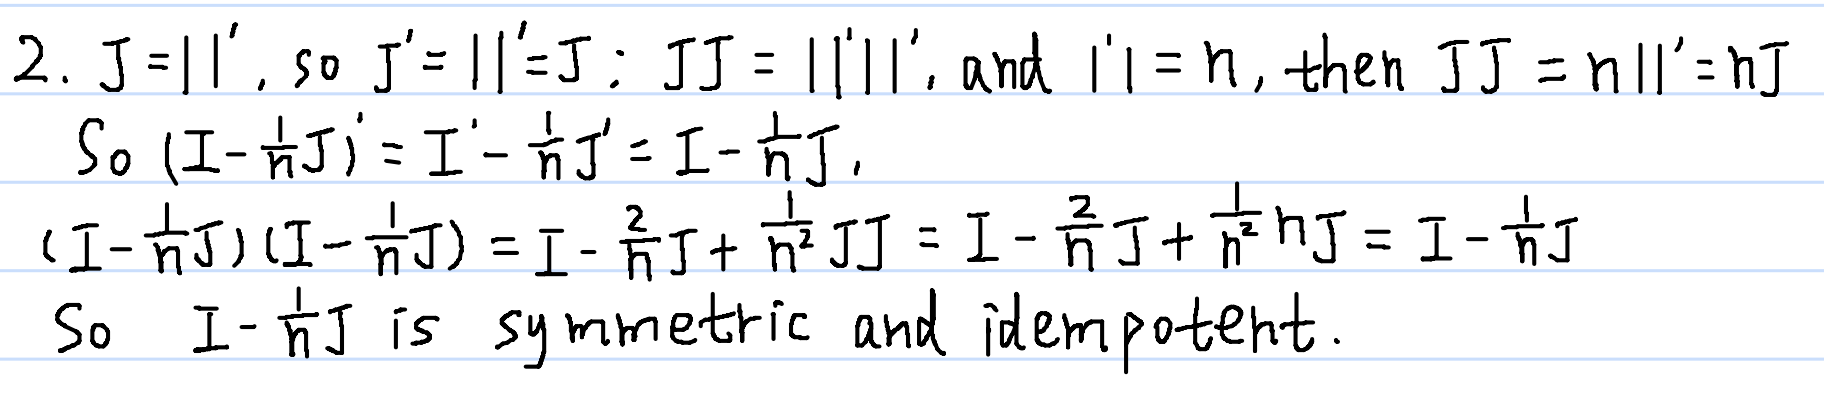 2. J = 11', so J' = 11' = J; JJ = 11'11', and 1'1 = n, then JJ = n11' = nJ
So (I - 1/n J)' = I' - 1/n J' = I - 1/n J,
(I - 1/n J)(I - 1/n J) = I - 2/n J + 1/n² JJ = I - 2/n J + 1/n² nJ = I - 1/n J
So I - 1/n J is symmetric and idempotent.